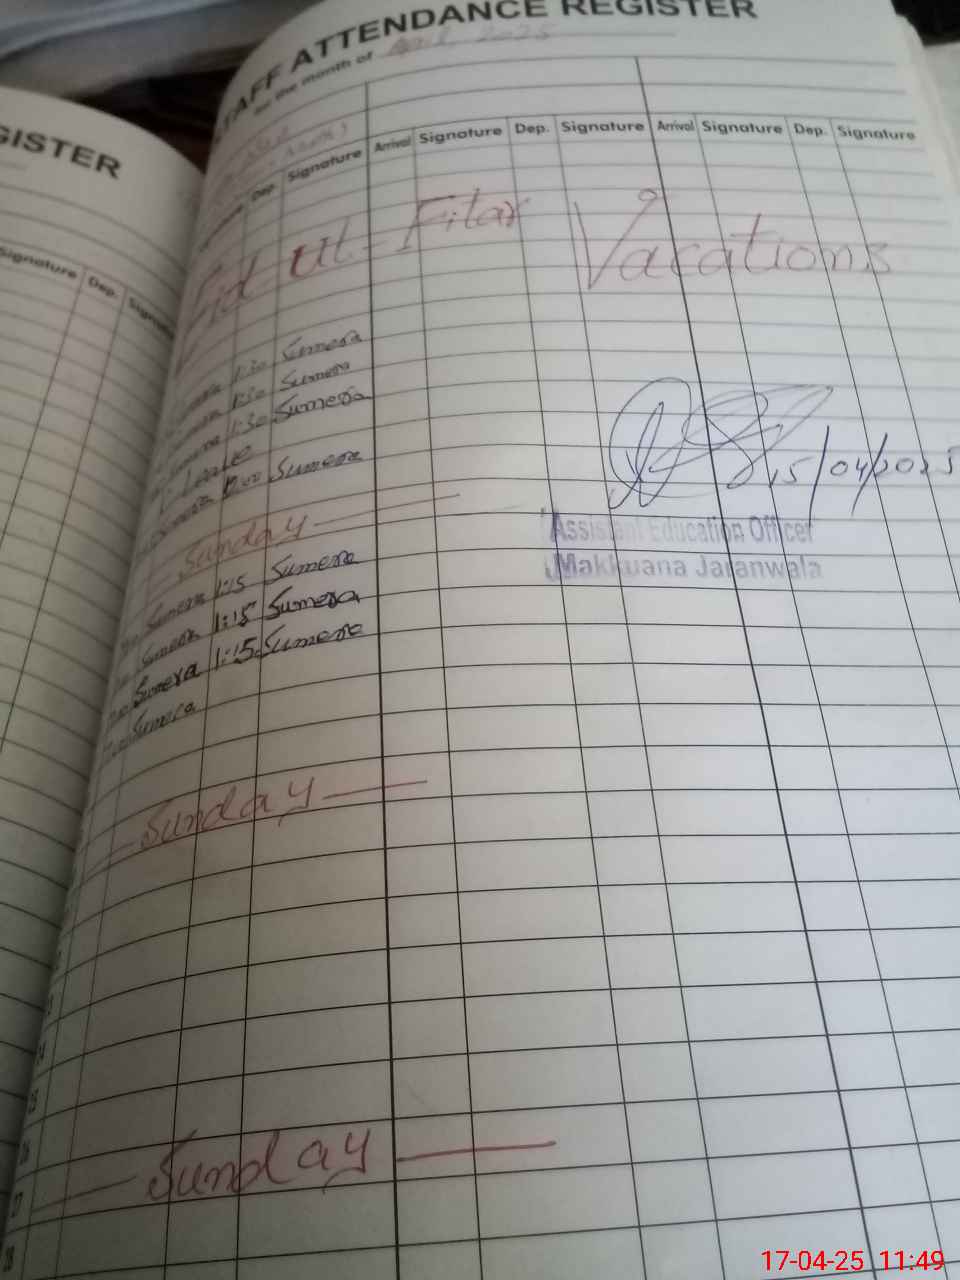 GISTER
Signature Dep.
STAFF ATTENDANCE REGISTER
for the month of April 2025
Dep. Signature Arrival Signature Dep. Signature Arrival Signature Dep. Signature
Eid Ul-Fitar Vacations
1:30 Sumera
1:30 Sumera
1:30 Sumera
Leave
Sumera
15/04/2025
Assistant Education Officer
Makkuana Jaranwala
Sunday
Sumera 1:15 Sumera
Sumera 1:15 Sumera
Sumera 1:15 Sumera
Sumera
Sunday
24
25
26
Sunday
27
28
17-04-25 11:49